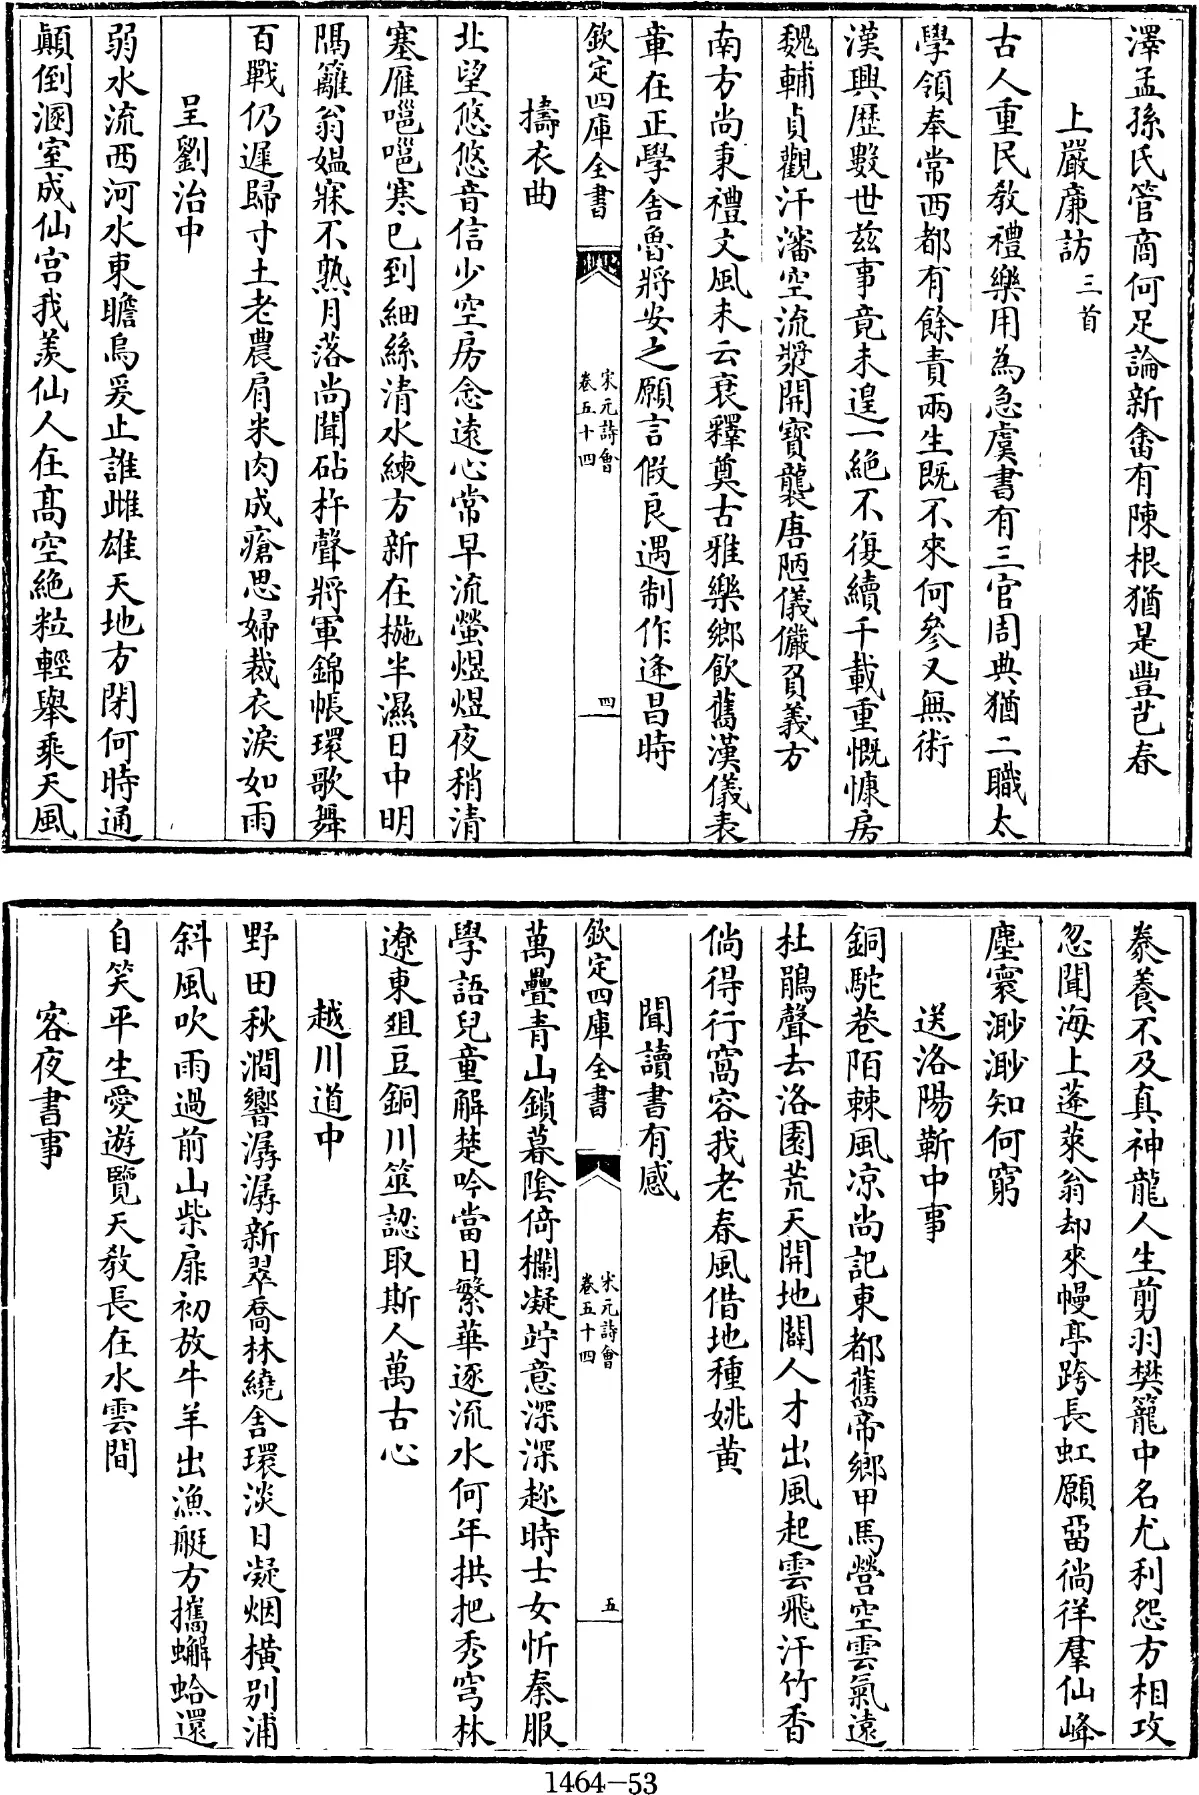 澤孟孫氏管商何足論新畬有陳根猶是豐芑春
上嚴廉訪三首
古人重民教禮樂用為急虞書有三官周典猶二職太
學領奉常西都有餘責兩生既不來何參又無術
漢興歷數世兹事竟未遑一絶不復續千載重慨慷房
魏輔貞觀汗瀋空流漿開寶襲唐陋儀儼負義方
南方尚秉禮文風未云衰釋奠古雅樂鄉飲舊漢儀表
章在正學舍魯將安之願言假良遇制作逢昌時
欽定四庫全書
宋元詩會
卷五十四
四
擣衣曲
北望悠悠音信少空房念遠心常早流螢煜煜夜稍清
塞雁嗈嗈寒已到細絲清水練方新在椸半濕日中明
隔籬翁媼寐不熟月落尚聞砧杵聲將軍錦帳環歌舞
百戰仍遲歸寸土老農肩米肉成瘡思婦裁衣淚如雨
呈劉治中
弱水流西河水東瞻烏爰止誰雌雄天地方閉何時通
顛倒溷室成仙宫我羨仙人在髙空絶粒輕舉乘天風
豢養不及真神龍人生剪羽樊籠中名尤利怨方相攻
忽聞海上蓬萊翁却來幔亭跨長虹願留徜徉羣仙峰
塵寰渺渺知何窮
送洛陽靳中事
銅駝巷陌棘風凉尚記東都舊帝鄉甲馬營空雲氣遠
杜鵑聲去洛園荒天開地闢人才出風起雲飛汗竹香
倘得行窩容我老春風借地種姚黄
聞讀書有感
欽定四庫全書
宋元詩會
卷五十四
五
萬疊青山鎖暮陰倚欄凝竚意深深趂時士女忻秦服
學語兒童解楚吟當日繁華逐流水何年拱把秀穹林
遼東俎豆銅川筮認取斯人萬古心
越川道中
野田秋澗響潺潺新翠喬林繞舍環淡日凝烟横别浦
斜風吹雨過前山柴扉初放牛羊出漁艇方攜蠏蛤還
自笑平生愛遊覽天教長在水雲間
客夜書事
1464-53